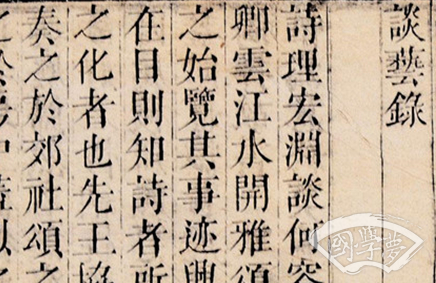 談藝錄
詩理宏淵談何容
卿雲江水開雅頌
之始覽其事迹興
在目則知詩者所
之化者也先王協
奏之於郊社頌之
國學夢